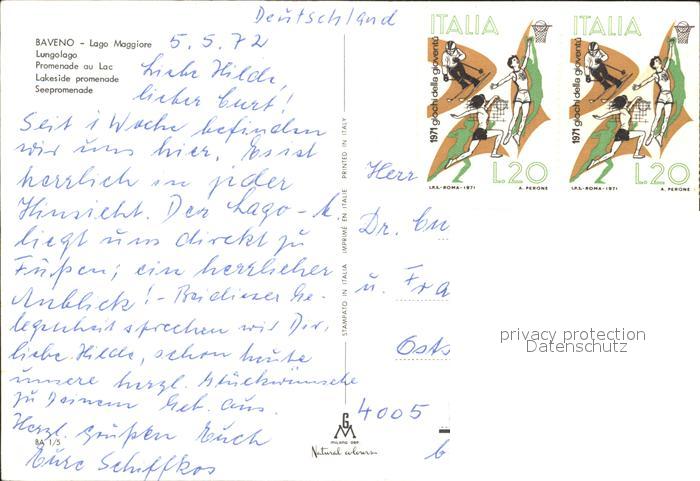 Deutschland
BAVENO - Lago Maggiore
Lungolago
Promenade au Lac
Lakeside promenade
Seepromenade
5. 5. 72
Liebe Hilde,
lieber Curt!
Seit 1 Woche befinden
wir uns hier. Es ist
herrlich in jeder
Hinsicht. Der Lago - M.
liegt uns direkt zu
Füßen; ein herrlicher
Anblick! - Bei dieser Ge-
legenheit sprechen wir Dir,
liebe Hilde, schon heute
unsere herzl. Glückwünsche
zu Deinem Geb. aus.
Herzl. grüßen Euch
Eure
BA 1/5
STAMPATO IN ITALIA IMPRIMÉ EN ITALIE PRINTED IN ITALY
GM
MILANO DEP.
Natural colours
ITALIA
1971 giochi della gioventù
L.20
I.P.S.-ROMA-1971 A. PERONE
ITALIA
1971 giochi della gioventù
L.20
I.P.S.-ROMA-1971 A. PERONE
Herr
Dr. Cu
u. Fra
4005
privacy protection
Datenschutz